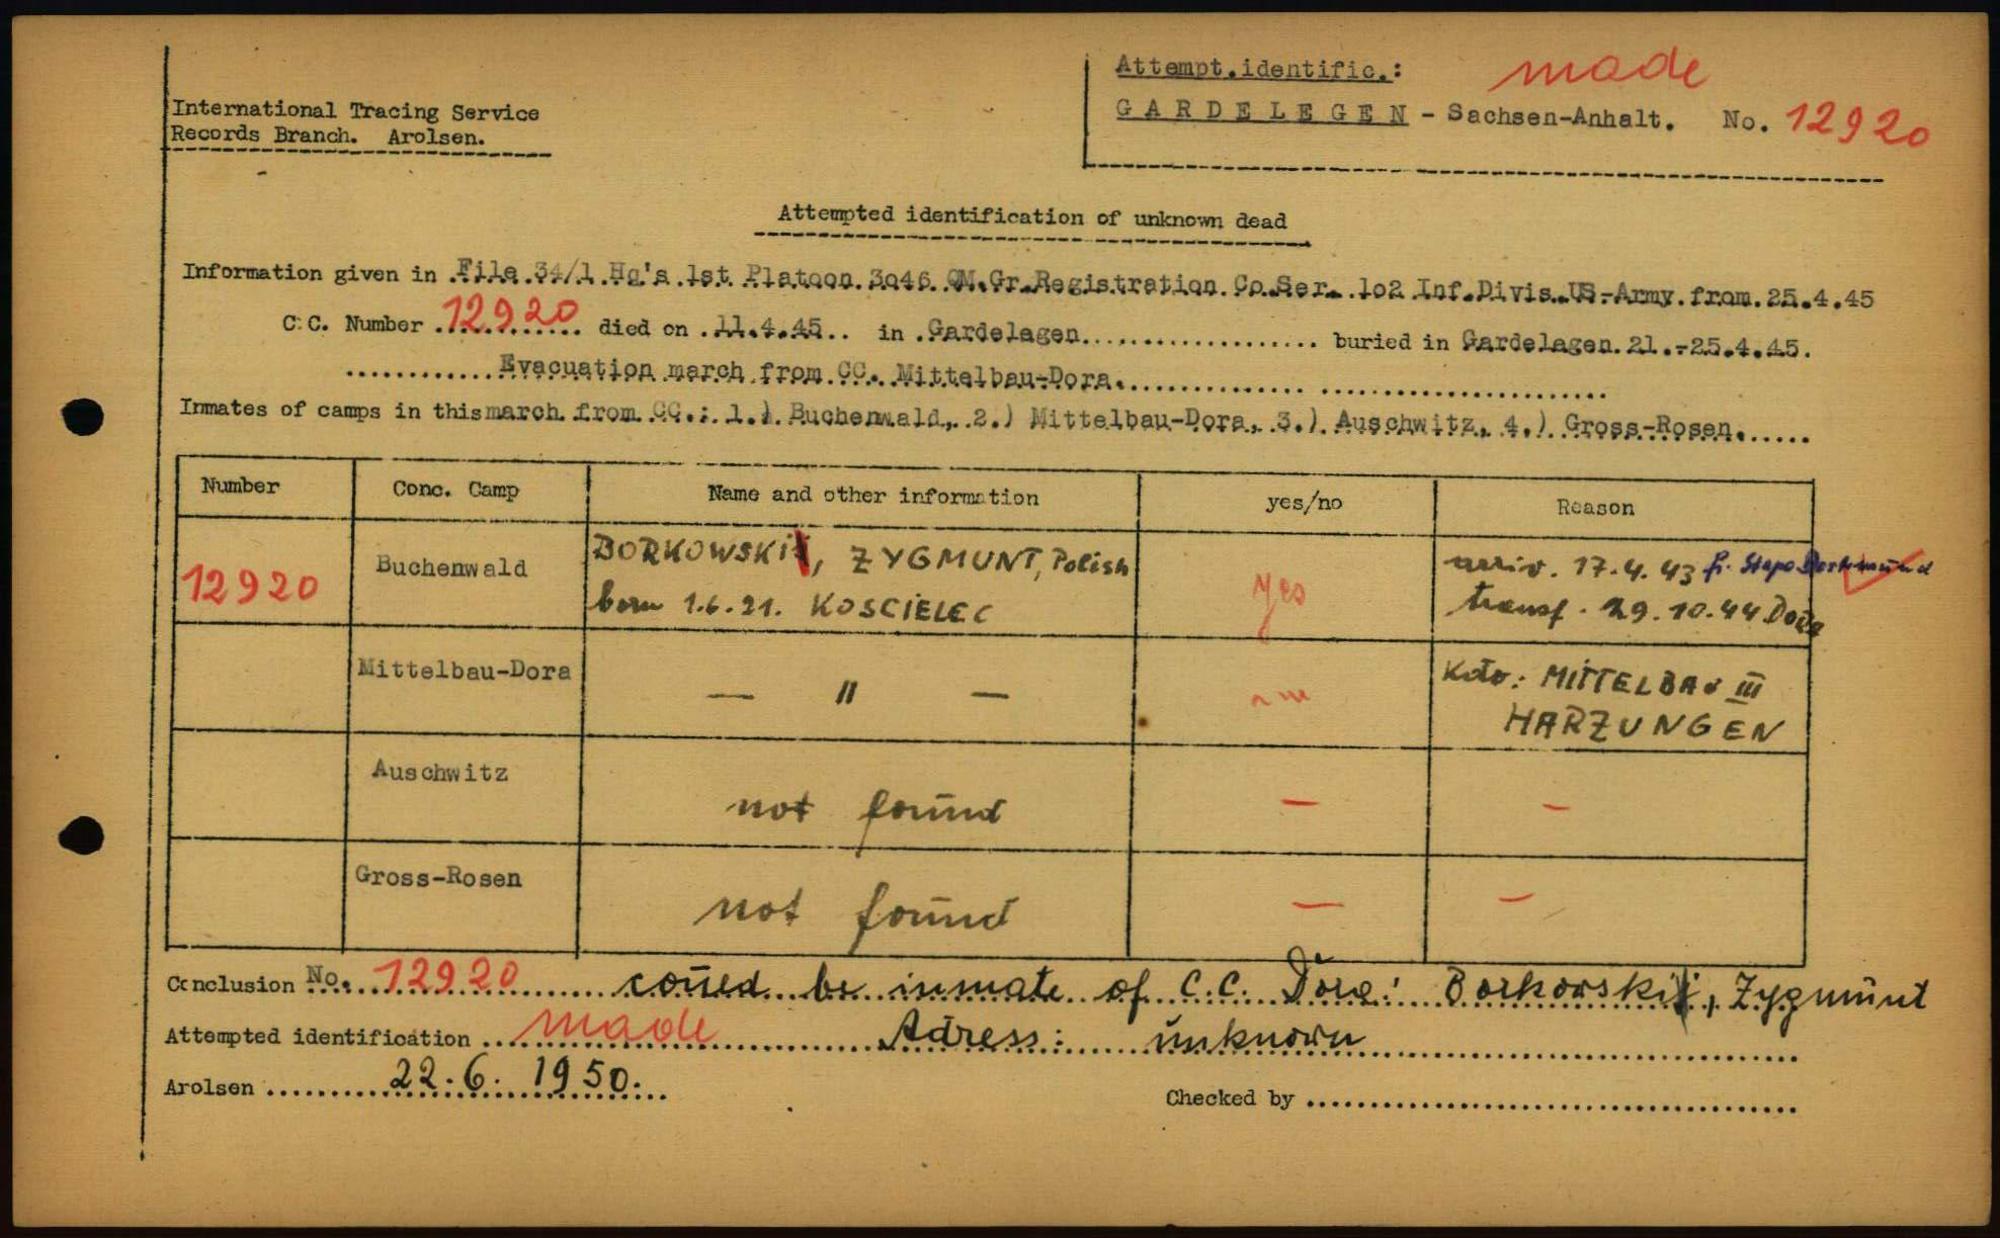 Attempt.identific.: made
International Tracing Service
Records Branch. Arolsen.
G A R D E L E G E N - Sachsen-Anhalt. No. 12920
Attempted identification of unknown dead
Information given in File 34/1 Hq's 1st Platoon 3o46 QM.Gr.Registration Co.Ser. 1o2 Inf.Divis.US-Army from 25.4.45
C.C. Number 12920 died on 11.4.45 in Gardelagen buried in Gardelagen 21.-25.4.45.
Evacuation march from CC. Mittelbau-Dora.
Inmates of camps in this march from CC.: 1.) Buchenwald, 2.) Mittelbau-Dora, 3.) Auschwitz, 4.) Gross-Rosen.
Number Conc. Camp Name and other information yes/no Reason
12920 Buchenwald BORKOWSKI, ZYGMUNT, Polish yes arriv. 17.4.43 fr. Stapo Dortmund
born 1.6.21. KOSCIELEC transf. 29.10.44 Dora
Mittelbau-Dora — " — Kdo: MITTELBAU III
HARZUNGEN
Auschwitz not found — —
Gross-Rosen not found — —
Conclusion No. 12920 could be inmate of C.C. Dora: Borkowski, Zygmunt
Attempted identification made Adress: unknown
Arolsen 22.6.1950.
Checked by